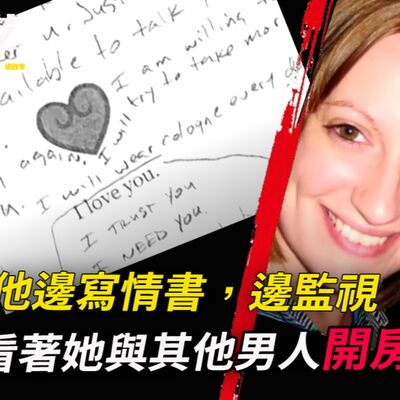 ur. Just
available to talk
I am willing t
try to take mor
again. I will
I will wear cologne every d
I love you.
I TRUST YOU
I NEED YOU.
他邊寫情書，邊監視
看著她與其他男人開房